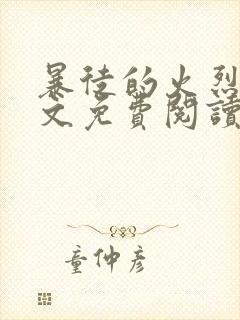 暴徒的火烈
文免費閱讀
童仲彥